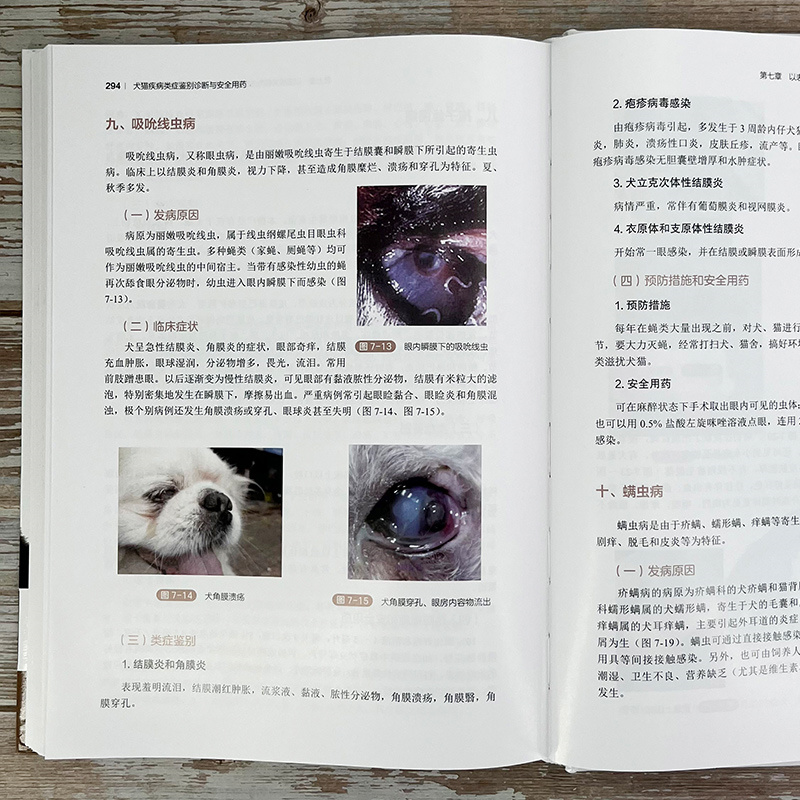 294 犬猫疾病类症鉴别诊断与安全用药
九、吸吮线虫病
吸吮线虫病，又称眼虫病，是由丽嫩吸吮线虫寄生于结膜囊和瞬膜下所引起的寄生虫
病。临床上以结膜炎和角膜炎，视力下降，甚至造成角膜糜烂、溃疡和穿孔为特征。夏、
秋季多发。
（一）发病原因
病原为丽嫩吸吮线虫，属于线虫纲螺尾虫目眼虫科
吸吮线虫属的寄生虫。多种蝇类（家蝇、厕蝇等）均可
作为丽嫩吸吮线虫的中间宿主。当带有感染性幼虫的蝇
再次舔食眼分泌物时，幼虫进入眼内瞬膜下而感染（图
7-13）。
（二）临床症状
犬呈急性结膜炎、角膜炎的症状，眼部奇痒，结膜
充血肿胀，眼球湿润，分泌物增多，畏光，流泪。常用
前肢蹭患眼。以后逐渐变为慢性结膜炎，可见眼部有黏液脓性分泌物，结膜有米粒大的滤
泡，特别密集地发生在瞬膜下，摩擦易出血。严重病例常引起眼睑黏合、眼睑炎和角膜混
浊，极个别病例还发生角膜溃疡或穿孔、眼球炎甚至失明（图 7-14、图 7-15）。
图 7-13 眼内瞬膜下的吸吮线虫
图 7-14 犬角膜溃疡
图 7-15 犬角膜穿孔、眼房内容物流出
（三）类症鉴别
1. 结膜炎和角膜炎
表现羞明流泪，结膜潮红肿胀，流浆液、黏液、脓性分泌物，角膜溃疡，角膜翳，角
膜穿孔。
第七章 以
2. 疱疹病毒感染
由疱疹病毒引起，多发生于 3 周龄内仔犬
炎，肺炎，溃疡性口炎，皮肤丘疹，流产等。
疱疹病毒感染无胆囊壁增厚和水肿症状。
3. 犬立克次体性结膜炎
病情严重，常伴有葡萄膜炎和视网膜炎。
4. 衣原体和支原体性结膜炎
开始常一眼感染，并在结膜或瞬膜表面形
（四）预防措施和安全用药
1. 预防措施
每年在蝇类大量出现之前，对犬、猫进
节，要大力灭蝇，经常打扫犬、猫舍，搞好环
类滋扰犬猫。
2. 安全用药
可在麻醉状态下手术取出眼内可见的虫体
也可以用 0.5% 盐酸左旋咪唑溶液点眼，连用
感染。
十、螨虫病
螨虫病是由于疥螨、蠕形螨、痒螨等寄生
剧痒、脱毛和皮炎等为特征。
（一）发病原因
疥螨病的病原为疥螨科的犬疥螨和猫背
科蠕形螨属的犬蠕形螨，寄生于犬的毛囊和
痒螨属的犬耳痒螨，主要引起外耳道的炎症
屑为生（图 7-19）。螨虫可通过直接接触感
用具等间接接触感染。另外，也可由饲养人
潮湿、卫生不良、营养缺乏（尤其是维生素
发生。